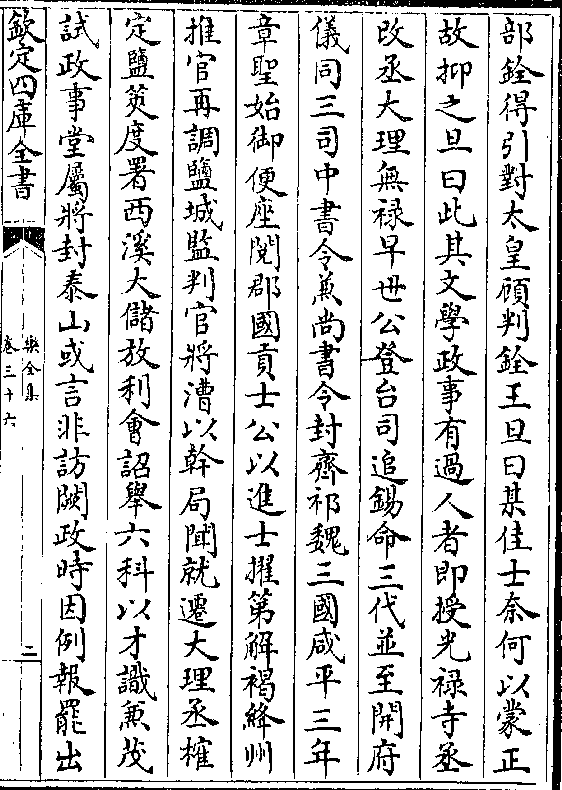 部銓得引對太皇顧判銓王旦曰某佳士奈何以蒙正
故抑之旦曰此其文學政事有過人者即授光禄寺丞
改丞大理無禄早丗公登台司追錫命三代並至開府
儀同三司中書令兼尚書令封齊祁魏三國咸平三年
章聖始御便座閱郡國貢士公以進士擢第解褐絳州
推官再調鹽城監判官將漕以幹局聞就遷大理丞榷
定鹽筴度署西溪大儲放利會詔舉六科以才識兼茂
試政事堂屬將封泰山或言非訪闕政時因例報罷出
欽定四庫全書
樂全集
卷三十六
二